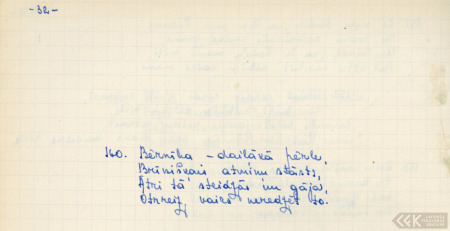 -32-
160. Bērnība - dailākā pērle,
Brīnišķais atmiņu stāsts,
Ātri tā steidzās un gāja,
Otrreiz, vairs neredzēs to.